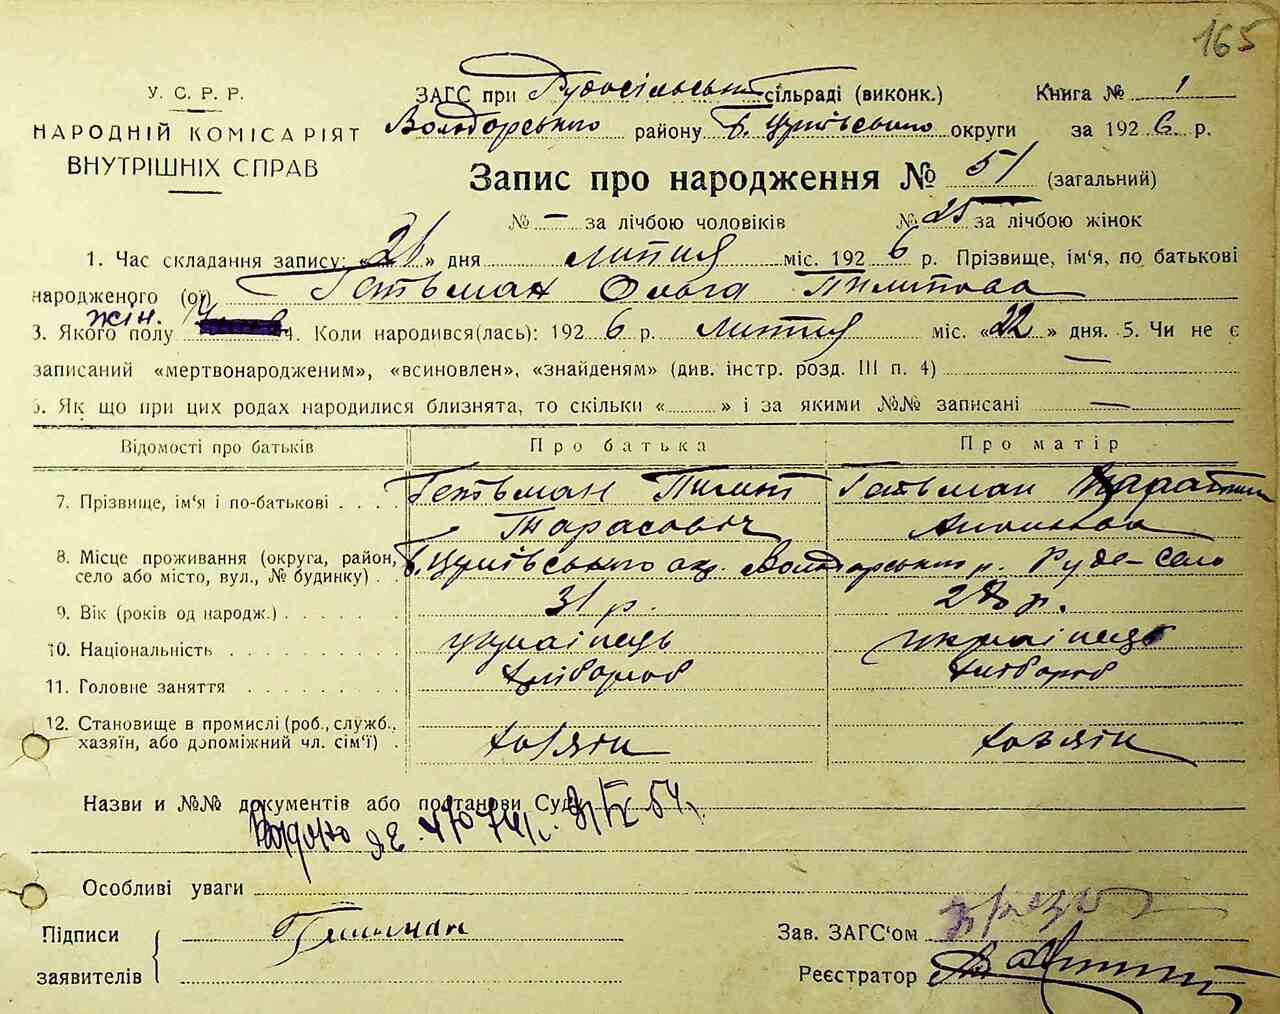 165
У. С. Р. Р.
НАРОДНІЙ КОМІСАРІЯТ
ВНУТРІШНІХ СПРАВ
ЗАГС при Рудосільські сільраді (виконк.) Книга № 1
Володарського району Б. Церківського округи за 1926 р.
Запис про народження № 51 (загальний)
№ – за лічбою чоловіків № 25 за лічбою жінок
1. Час складання запису: «21» дня липня міс. 1926 р. Прізвище, ім'я, по батькові
народженого (ої) Гетьман Ольга Пилипова
жін.
3. Якого полу 4. Коли народився(лась): 1926 р. липня міс. «22» дня. 5. Чи не є
записаний «мертвонародженим», «всиновлен», «знайденям» (див. інстр. розд. III п. 4) —
6. Як що при цих родах народилися близнята, то скільки « » і за якими №№ записані —
Відомості про батьків Про батька Про матір
7. Прізвище, ім'я і по-батькові Гетьман Пилип Гетьман
Тарасович
8. Місце проживання (округа, район, Б. Церківського окр. Володарського р. Руде-село
село або місто, вул., № будинку)
9. Вік (років од народж.) 31 р. 28 р.
10. Національність українець українець
11. Головне заняття хлібороб хлібороб
12. Становище в промислі (роб., служб., хазяїн, або допоміжний чл. сім'ї) хозяін хозяін
Назви и №№ документів або постанови Суду
Особливі уваги
Підписи Гетьман Зав. ЗАГС'ом
заявителів Реєстратор